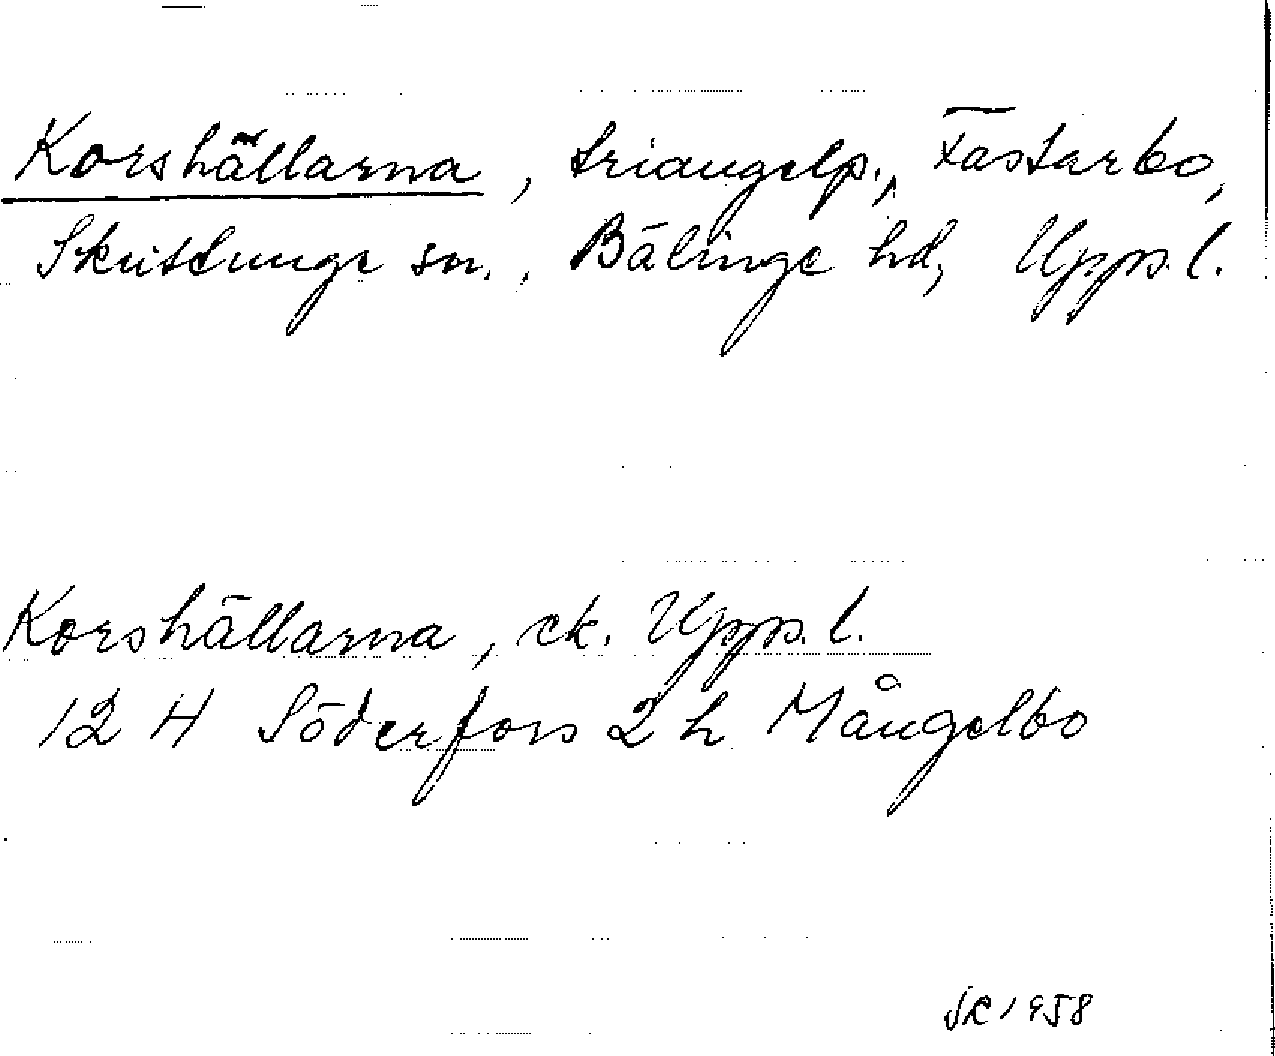 Korshällarna, triangelp., Fastarbo,
Skuttunge sn., Bälinge hd, Uppl.
Korshällarna, ek. Uppl.
12 H Söderfors 2 h Mångelbo
1958